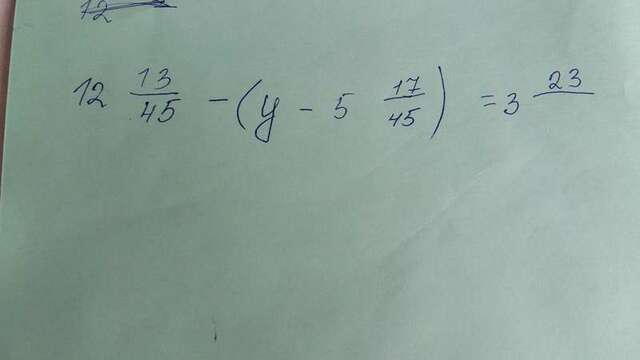 12
12 13/45 - (y - 5 17/45) = 3 23/